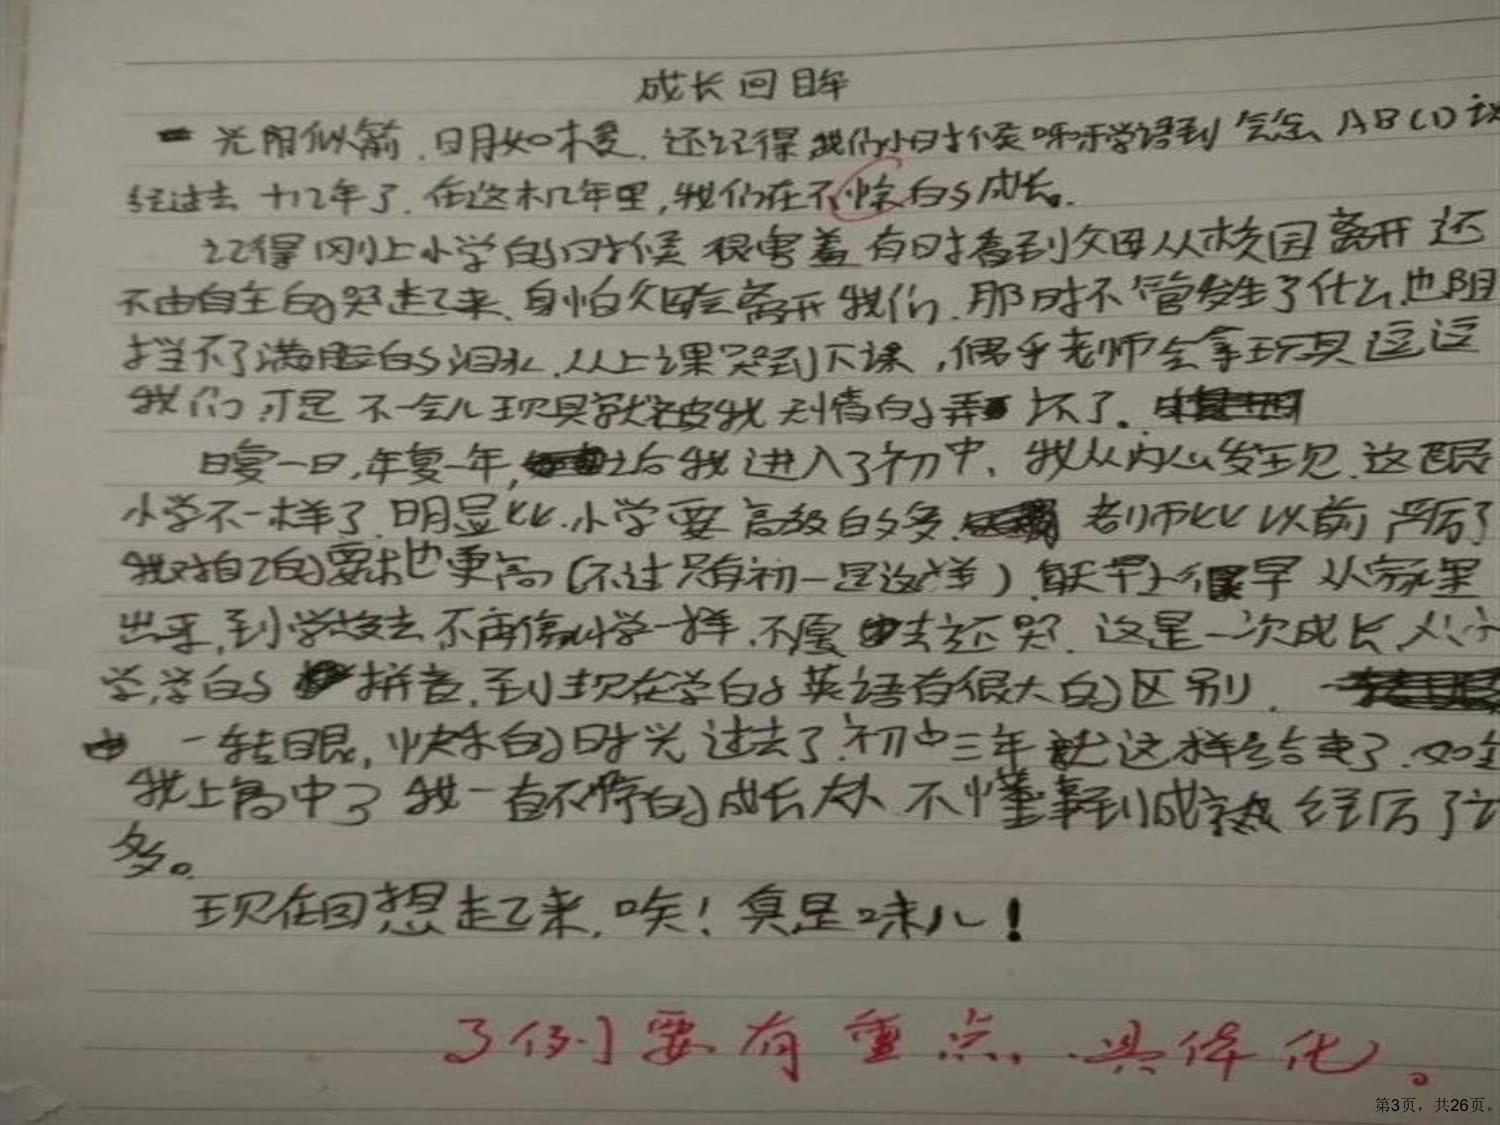 成长回眸
光阴似箭，日月如梭，还记得我们小时候呀呀学语到会念ABCD
经过去十几年了，在这十几年里，我们在不惊的成长。
记得刚上小学的时候很害羞有时看到父母从校园离开还
不由自主的哭起来，身怕父母会离开我们，那时不管发生了什么也阻
挡不了满脸的泪水，从上课哭到下课，偶乎老师会拿玩具逗逗
我们，可是不一会儿玩具就被我无情的弄坏了。
日复一日，年复一年，之后我进入了初中，我从内心发现，这跟
小学不一样了，明显比小学要高级的多，老师比以前严厉了
我对自己的要求也更高（不过只有初一是这样），每天早上很早从家里
出来，到学校去不再像小学一样，不愿去还哭，这是一次成长，从小
学，学的拼音，到现在学的英语有很大的区别，
一转眼，快乐的时光过去了，初中三年就这样结束了，如今
我上高中了我一直不停的成长从不懂事到成熟经历了
多。
现在回想起来，唉！真是味儿！
3例要有重点，具体化。
第3页，共26页。